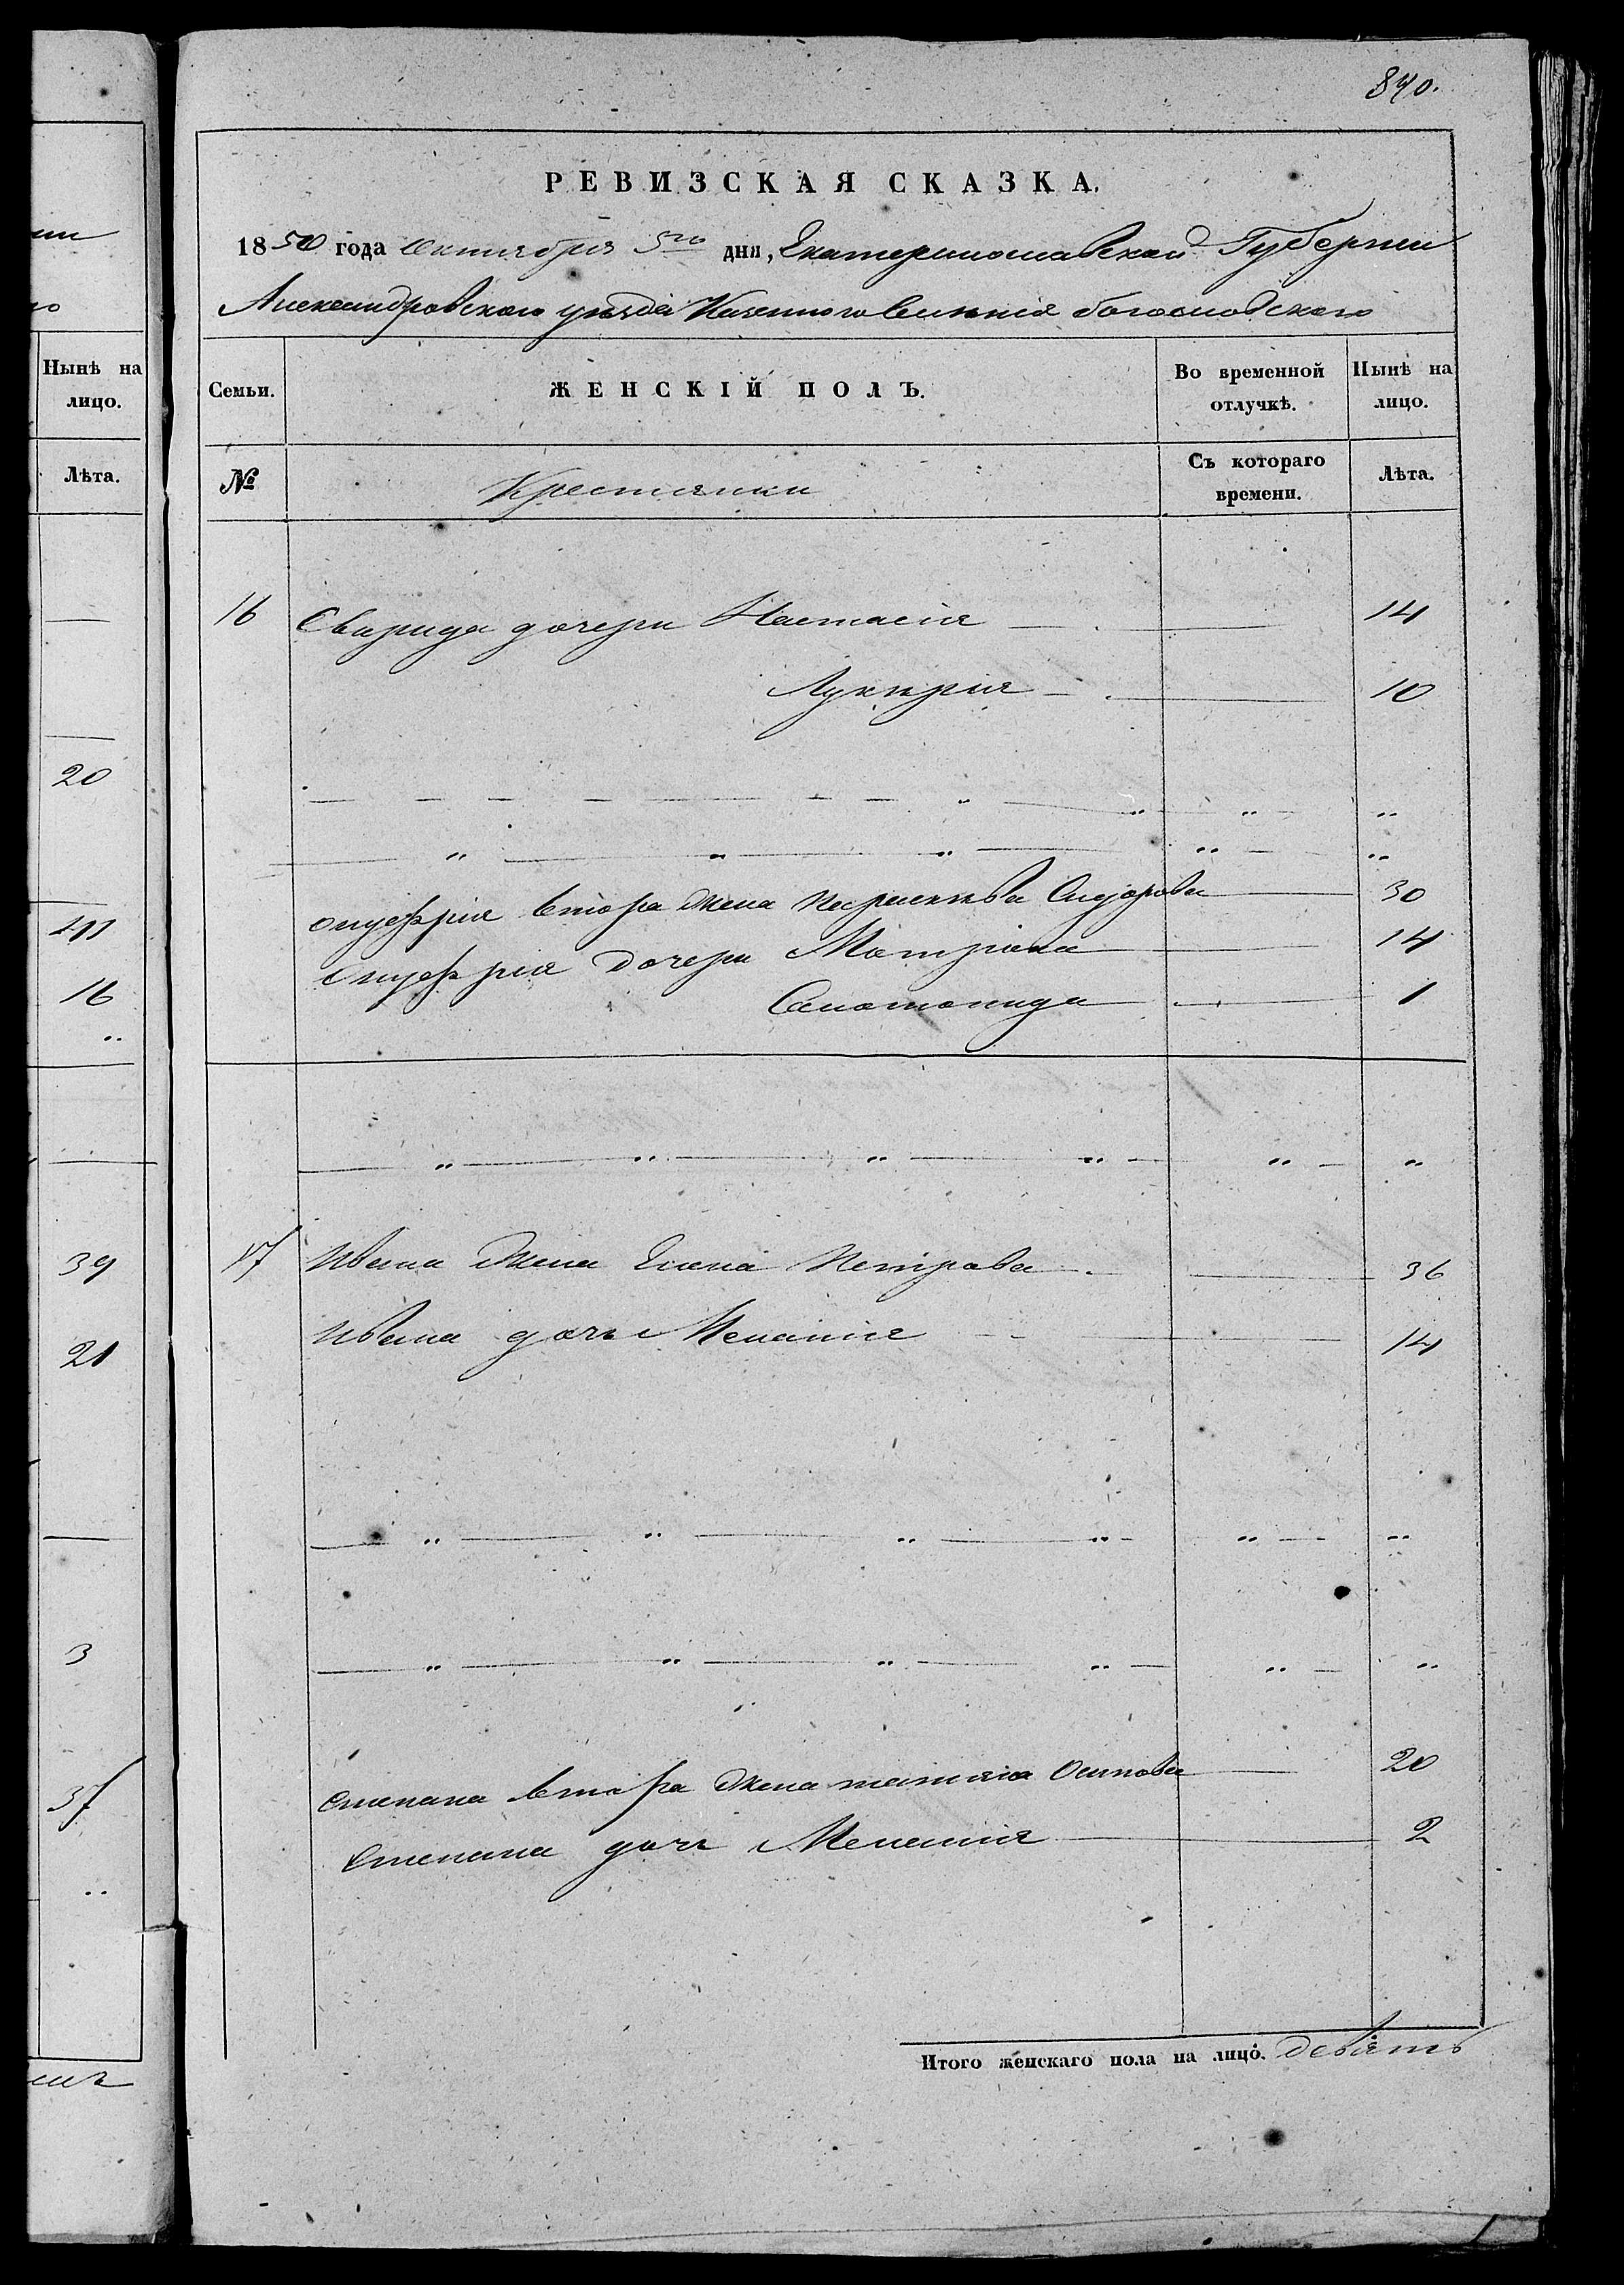 нии
го
Нынѣ на
лицо.
Лѣта.
20
16
„
39
21
3
37
„
840.
РЕВИЗСКАЯ СКАЗКА.
1850 года Октября 5го дня, Екатеринославской Губернии
Александровского уѣзда Казенного Селѣнія богословского
Семьи.
ЖЕНСКІЙ ПОЛЪ.
Во временной
отлучкѣ.
Нынѣ на
лицо.
№
Крестянки
Съ котораго
времени.
Лѣта.
16 Свирида дочери Настасія 14
Лукѣрія 10
„ „ „ „
„ „ „ „ „
онуфрія втора жена Сидорова 30
Онуфрія дочери Матрона 14
1
„ „ „ „ „ „
17 Ивана жена Елена Петрова 36
Ивана дочь Меланія 14
„ „ „ „ „ „
„ „ „ „ „ „
Степана втора жена татияна Осипова 20
Степана дочь Меланія 2
Итого женскаго пола на лицо. девять